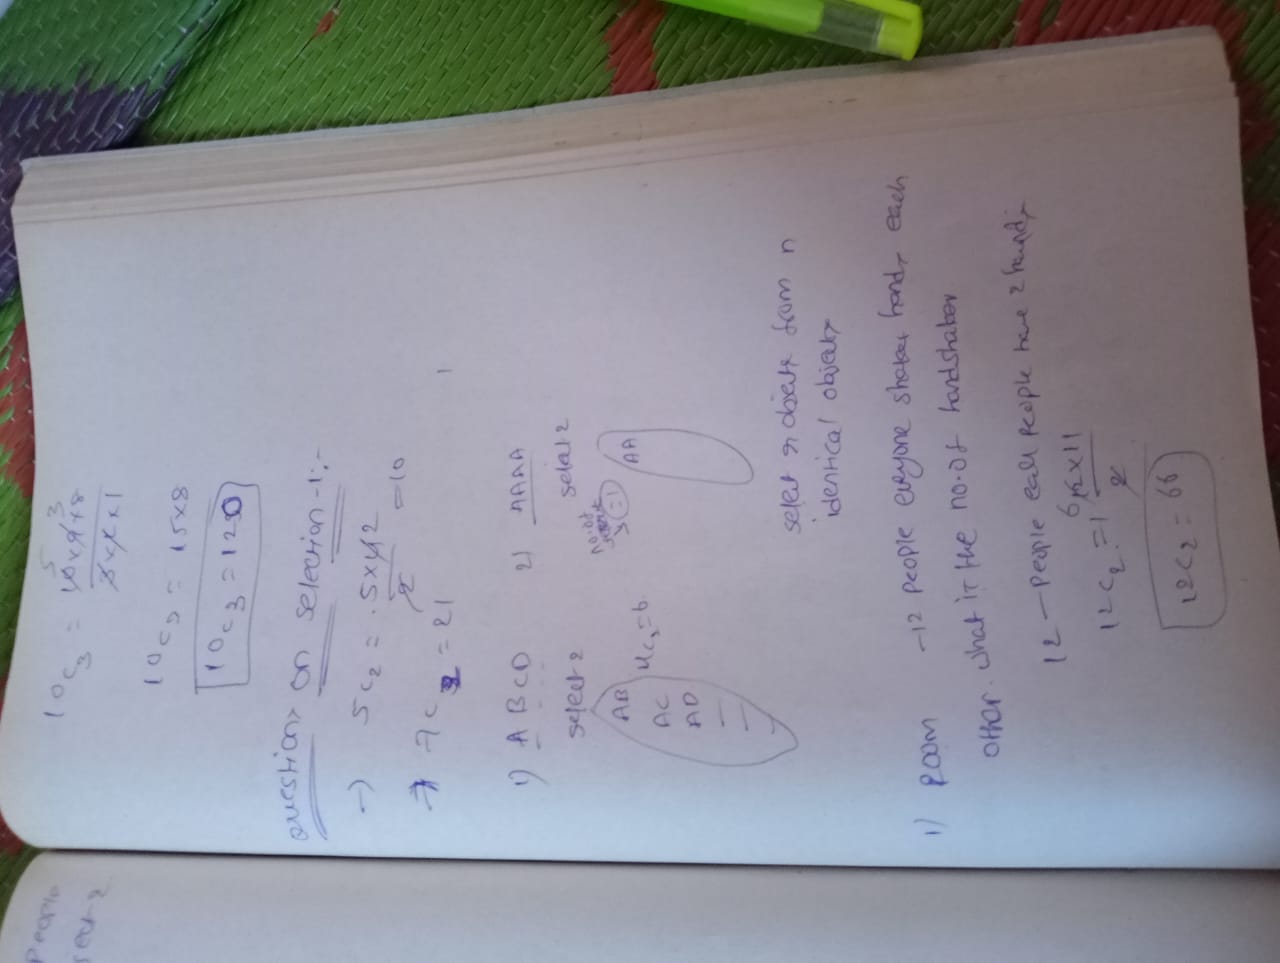 10C3 = 10x9x8
3x2x1
5 3
10C3 = 15x8
10C3 = 120
Questions on selection-1:-
→ 5C2 = 5x4 2 = 10
2
→ 7C2 = 21
1) A B C D
select 2
AB
AC
AD
4C2=6
2) AAAA
select 2
no. of
=1
AA
select r objects from n
identical objects
1) Room - 12 people everyone shakes hands each
other. what is the no. of handshakes
12 - people each people have 2 hands
12C2 = 12x11
6
2
12C2 = 66
people